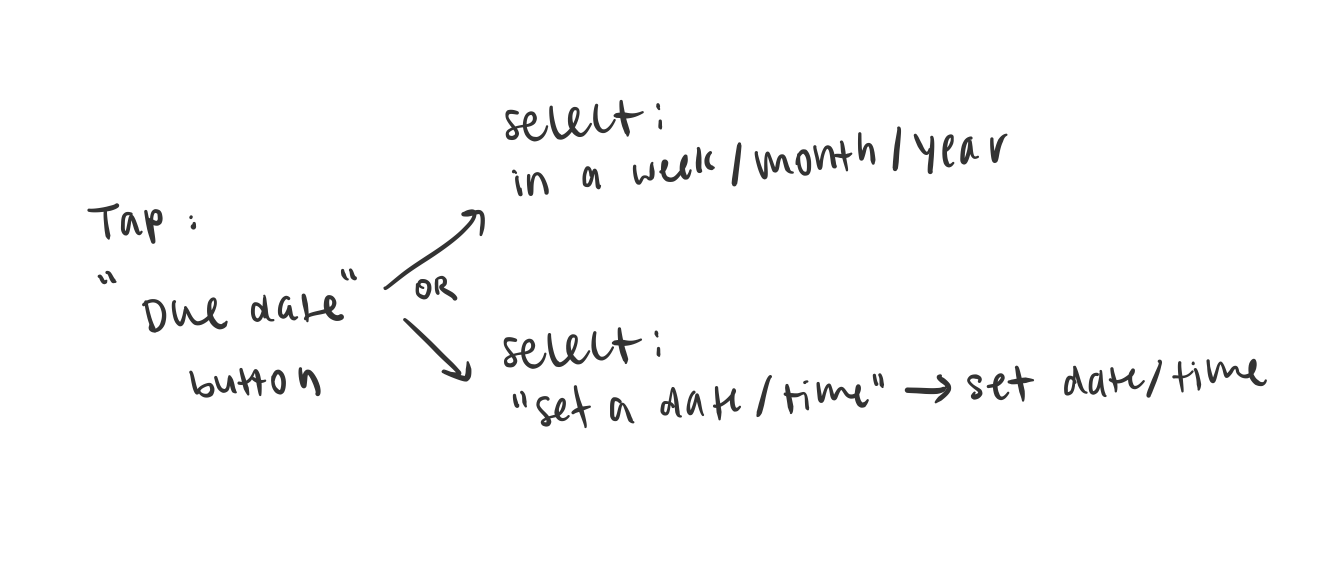 Tap :
"Due date"
button
OR
select:
in a week/month/year
select:
"set a date/time" → set date/time